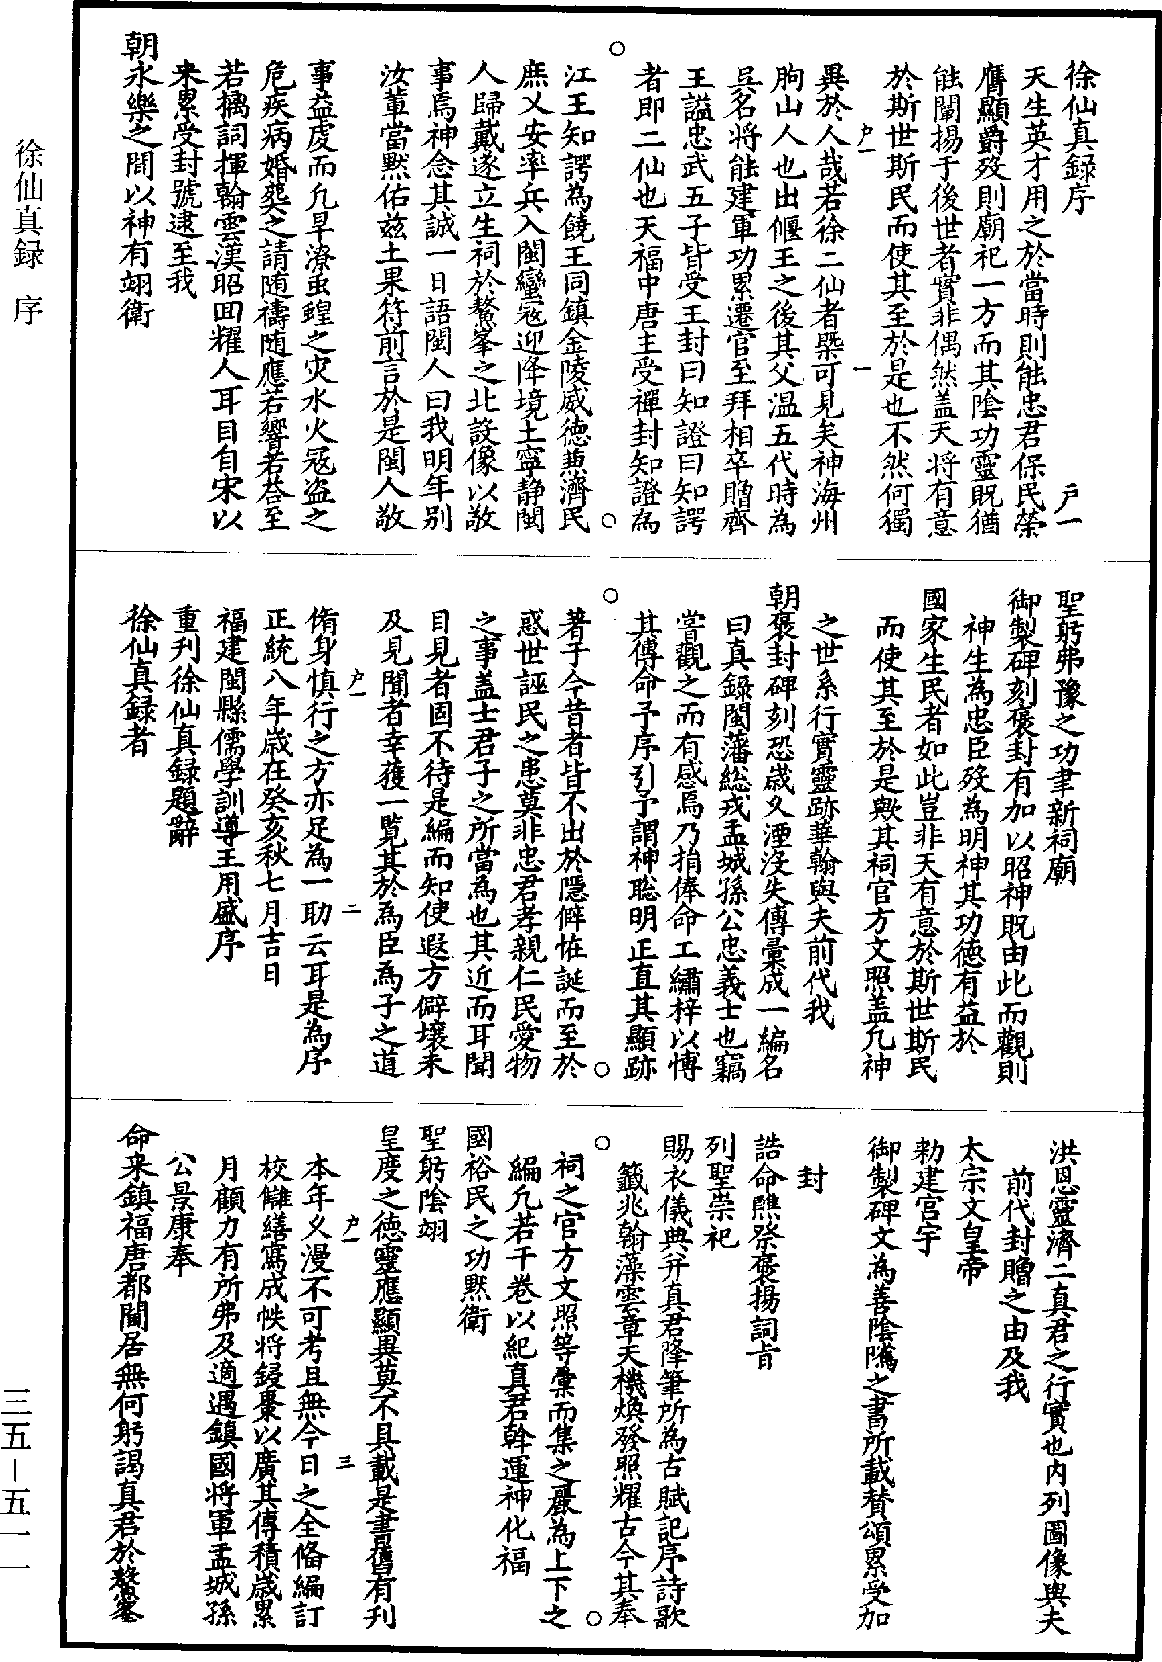 徐仙真録序
天生英才用之於當時則能忠君保民榮
膺顯爵歿則廟祀一方而其陰功靈貺猶
能闡揚于後世者實非偶然盖天将有意
於斯世斯民而使其至於是也不然何獨
異於人哉若徐二仙者槩可見矣神海州
朐山人也出偃王之後其父温五代時為
吳名将能建軍功累遷官至拜相卒贈齊
王謚忠武五子皆受王封曰知證曰知諤
者即二仙也天福中唐主受禪封知證為
江王知諤為饒王同鎮金陵威德兼濟民
庶乂安率兵入閩蠻寇迎降境土寧静閩
人歸戴遂立生祠於鰲峯之北設像以敬
事焉神念其誠一日語閩人曰我明年别
汝軰當黙佑兹土果符前言於是閩人敬
事益虔而凡旱潦虫蝗之灾水火冦盗之
危疾病婚葬之請随禱随應若響若荅至
若摛詞揮翰雲漢昭回耀人耳目自宋以
来累受封號逮至我
朝永樂之間以神有翊衛
聖躬弗豫之功聿新祠廟
御製碑刻褒封有加以昭神貺由此而觀則
神生為忠臣歿為明神其功德有益於
國家生民者如此豈非天有意於斯世斯民
而使其至於是歟其祠官方文照盖凡神
之世系行實靈跡華翰與夫前代我
朝褒封碑刻恐歲久湮沒失傳彙成一編名
曰真録閩藩総戎孟城孫公忠義士也竊
嘗觀之而有感焉乃捐俸命工繡梓以博
其傳命予序引予謂神聡明正直其顯跡
著于今昔者皆不出於隠僻恠誕而至於
惑世誣民之患莫非忠君孝親仁民愛物
之事盖士君子之所當為也其近而耳聞
目見者固不待是編而知使遐方僻壤未
及見聞者幸獲一覧其於為臣為子之道
脩身慎行之方亦足為一助云耳是為序
正統八年歳在癸亥秋七月吉日
福建閩縣儒學訓導王用盛序
重刋徐仙真録題辭
徐仙真録者
洪恩靈濟二真君之行實也内列圖像與夫
前代封贈之由及我
太宗文皇帝
勑建宫宇
御製碑文為善陰隲之書所載賛頌累受加
封
誥命醮祭褒揚詞㫖
列聖崇祀
賜衣儀典并真君降筆所為古賦記序詩歌
籤兆翰藻雲章天機煥發照耀古今其奉
祠之官方文照等彚而集之釐為上下之
編凡若干卷以紀真君斡運神化福
國裕民之功黙衛
聖躬陰翊
皇度之德靈應顯異莫不具載是書舊有刋
本年乂漫不可考且無今日之全俻編訂
校讎繕寫成帙将鋟棗以廣其傳積歳累
月顧力有所弗及適遇鎮國将軍孟城孫
公景康奉
命来鎮福唐都閫居無何躬謁真君於鰲峯
徐仙真録 序
三五－五一一